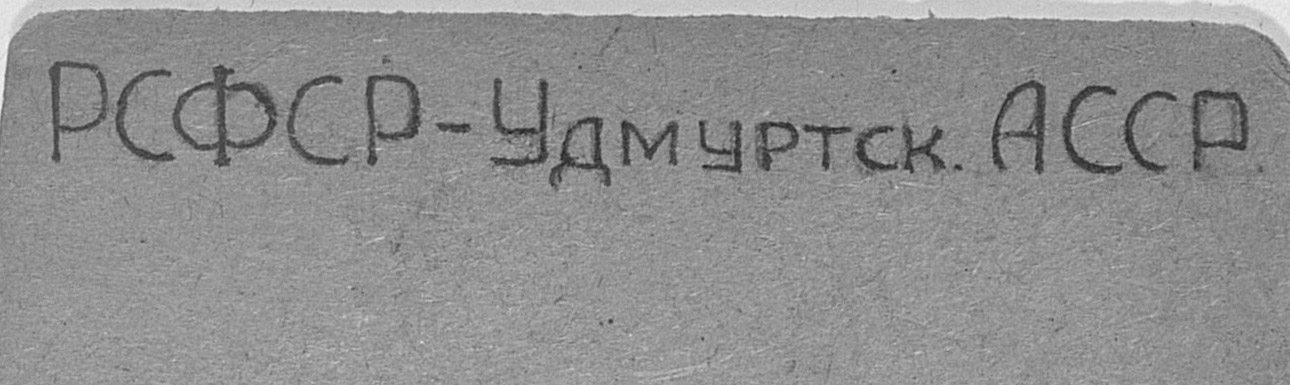 РСФСР-Удмуртск. АССР.